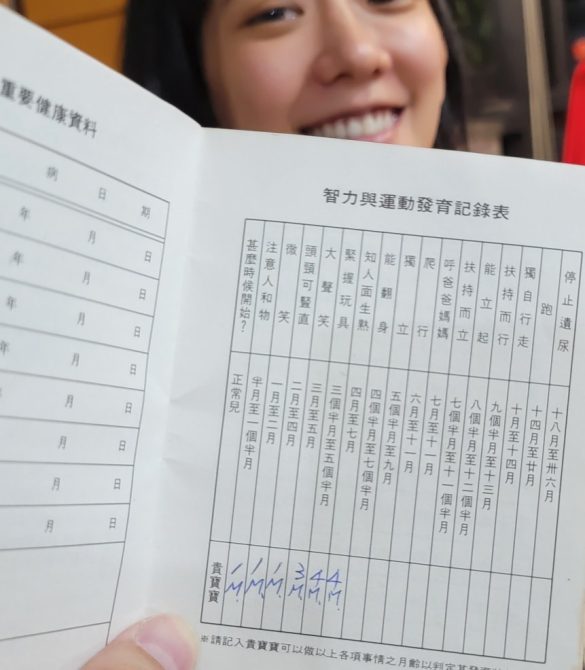 重要健康資料
病 日 期
年 月 日
年 月 日
年 月 日
年 月 日
月 日
月 日
月 日
月 日
智力與運動發育記錄表
甚麼時候開始?
注意人和物
微笑
頭頸可豎直
大聲笑
緊握玩具
知人面生熟
能翻身
獨立
爬行
呼爸爸媽媽
扶持而立
能立起
扶持而行
獨自行走
跑
停止遺尿
正常兒
半月至一個半月
一月至二月
二月至四月
三月至五月
三個半月至五個半月
四月至七月
四個半月至七個半月
五個半月至九月
六月至十一月
七月至十一月
七個半月至十一個半月
八個半月至十二個半月
九個半月至十三月
十月至十四月
十四月至廿月
十八月至卅六月
貴寶寶
1M.
1M.
1M.
3M.
4M.
4M.
※請記入貴寶寶可以做以上各項事情之月齡以判定其發育